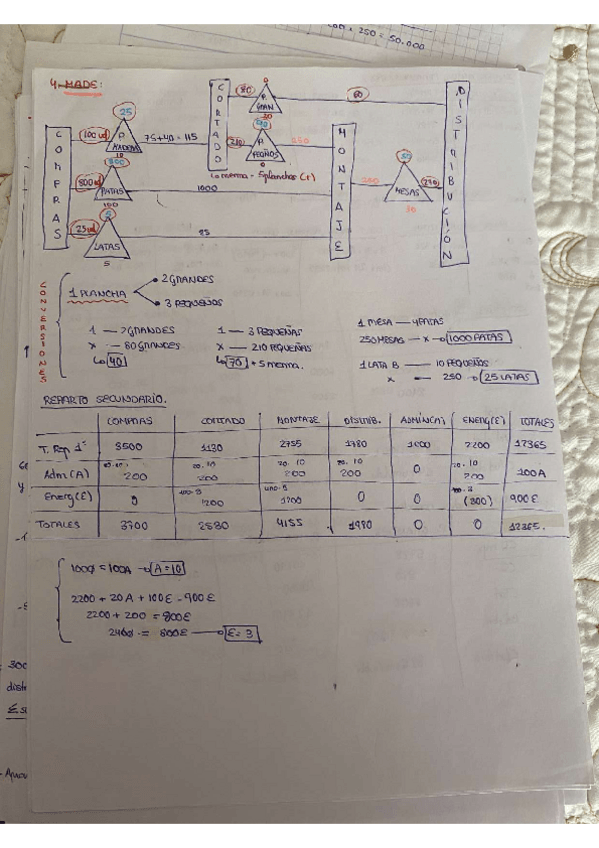 + 250 = 50.000
4-MADE:
COMPRAS
100 ud
25
P. MADERA
10
75+40 = 115
CORTADO
80
0
P. GRAN
20
60
210
P. PEQÑOS
0
250
Co merma - 5 planchas (t)
MONTAJE
DISTRIBUCIÓN
800 ud
PATAS
100
1000
25 ud
5
LATAS
5
25
250
MESAS
30
CONVERSIONES
1 PLANCHA
2 GRANDES
3 PEQUEÑOS
1 — 2 GRANDES
x — 80 GRANDES
40
1 — 3 PEQUEÑAS
x — 210 PEQUEÑAS
70 + 5 merma.
1 MESA — 4 PATAS
250 MESAS — x → 1000 PATAS
1 LATA B — 10 PEQUEÑOS
x — 250 → 25 LATAS
REPARTO SECUNDARIO.
COMPRAS CORTADO MONTAJE DISTRIB. ADMIN(A) ENERG(E) TOTALES
T. Rep 1º 3500 1130 2755 1780 1000 2200 12365
20. 10 20. 10 20. 10 20. 10 20. 10
Adm (A) 200 200 200 200 0 200 100A
Energ(E) 0 1200 0 0 900E
TOTALES 3700 4155 1980 0 0 12365.
1000 = 100A → A = 10
2200 + 20A + 100E = 900E
2200 + 200 = 800E
800E → E = 3
300